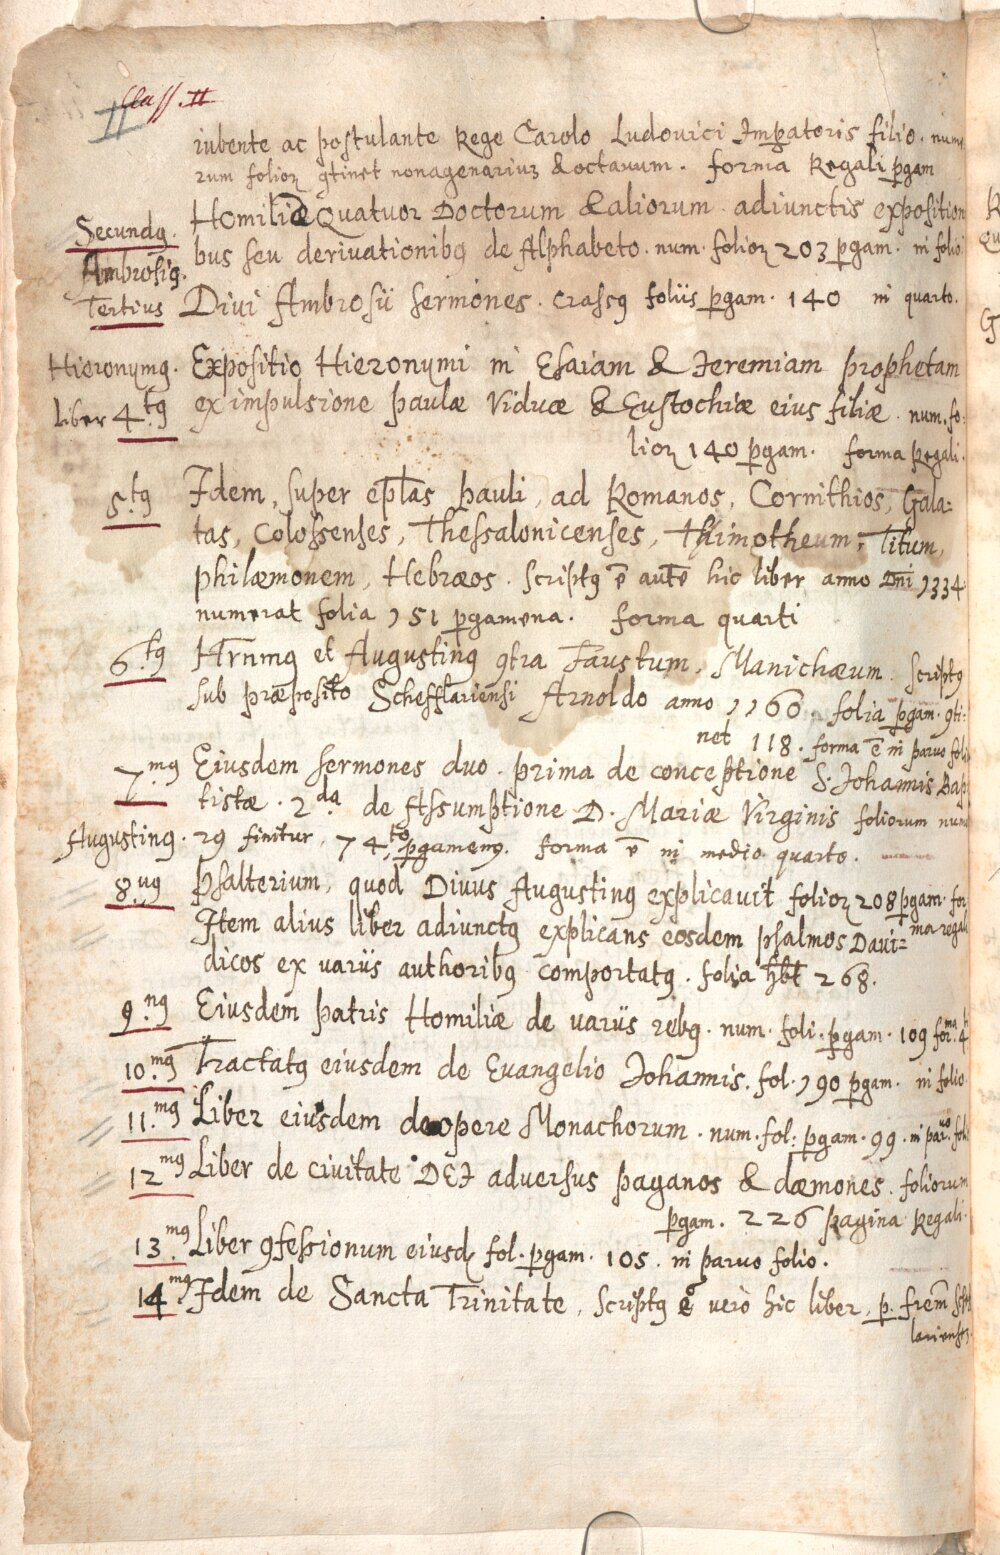 Class. II
II
iubente ac postulante Rege Carolo Ludovici Imꝑatoris filio. nume
rum folioꝝ ꝯtinet nonagenariuꝫ & octauum. forma Regali ꝑgam
Homiliæ Quatuor Doctorum & aliorum adiunctis exposition
Secundꝰ.
bus seu derivationibꝰ de Alphabeto. num. folioꝝ 203 ꝑgam. in folio
Ambrosiꝰ.
Tertius Divi Ambrosii sermones. crassꝰ foliis ꝑgam. 140 in quarto.
Hieronymꝰ. Expositio Hieronymi in Esaiam & Jeremiam prophetam
Liber 4.tꝰ ex impulsione Paulæ Viduæ & Eustochiæ eius filiæ. num. fo-
lioꝝ 140 ꝑgam. forma Regali.
5.tꝰ Idem, super ep̄las Pauli, ad Romanos, Corinthios, Gala=
tas, Colossenses, Thessalonicenses, Thimotheum, Titum,
Philæmonem, Hebræos. Scriptꝰ ē autē hic liber anno Dn̄i 1334
numerat folia 151 ꝑgamena. forma quarti
6.tꝰ Hr̄nmꝰ et Augustinꝰ ꝯtra Faustum, Manichæum. Scriptꝰ
sub præposito Schefftlariensi Arnoldo anno 1160. folia ꝑgam. ꝯti=
net 118. forma ē in paruo foli
7.mꝰ Eiusdem sermones duo. prima de conceptione S. Johannis Bap
tistæ. 2da de Assumptione D. Mariæ Virginis foliorum nume
Augustinꝰ. rꝰ finitur, 74.to ꝑgamenꝰ. forma ē in medio quarto.
8.uꝰ Psalterium, quod Divus Augustinꝰ explicavit folioꝝ 208 ꝑgam. for
ma regali
Item alius liber adiunctꝰ explicans eosdem psalmos Davi=
dicos ex variis authoribꝰ comportatꝰ. folia hb̄t 268.
9.nꝰ Eiusdem Patris Homiliæ de variis rebꝰ. num. foli. ꝑgam. 109 forma. 4
10.mꝰ Tractatꝰ eiusdem de Evangelio Johannis. fol. 190 ꝑgam. in folio
11.mꝰ Liber eiusdem de opere Monachorum. num. fol: ꝑgam. 99. in par.vo fol.
12mꝰ Liber de civitate DEI adversus paganos & dæmones. foliorum
ꝑgam. 226 pagina Regali.
13.mꝰ Liber ꝯfessionum eiusd fol. ꝑgam. 105. in paruo folio.
14mꝰ Idem de Sancta Trinitate, scriptꝰ ē verò hic liber, ꝑ. frem̄
lariensẽ